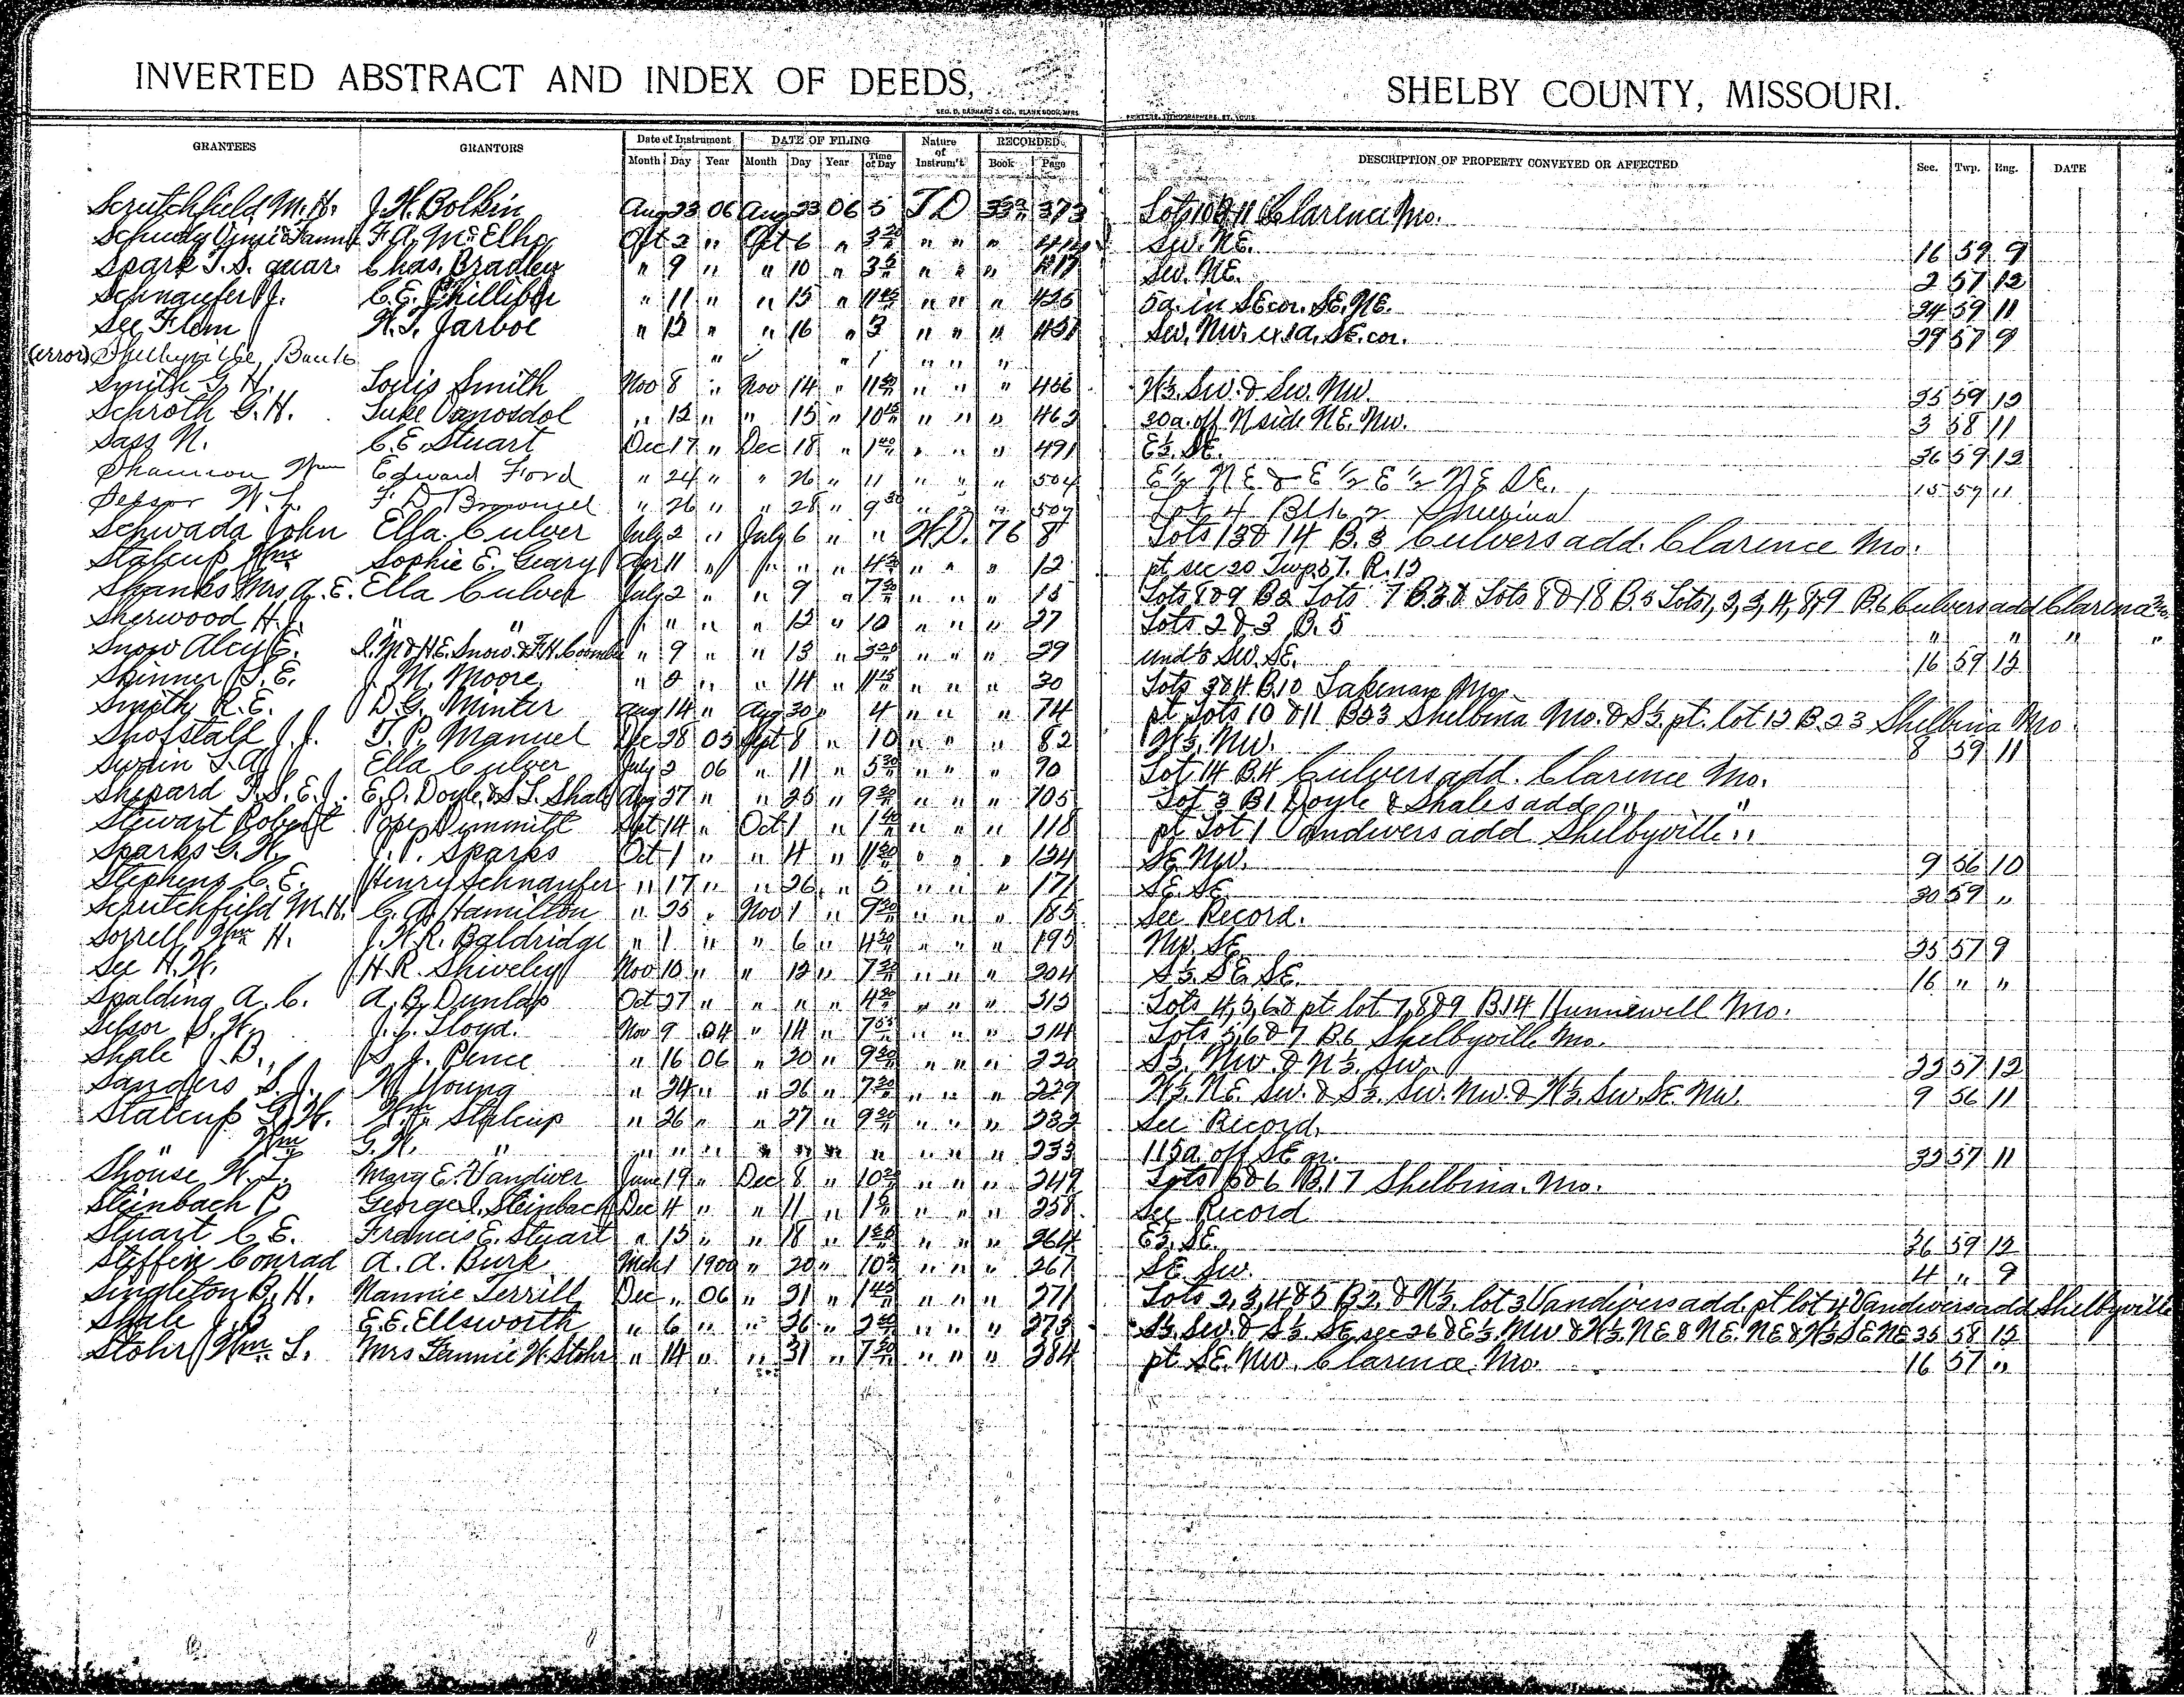 INVERTED ABSTRACT AND INDEX OF DEEDS, SHELBY COUNTY, MISSOURI.
GEO. D. BARNARD & CO., BLANK BOOK MFRS. PRINTERS, LITHOGRAPHERS, ST. LOUIS
GRANTEES GRANTORS Date of Instrument DATE OF FILING Nature of Instrum't RECORDED DESCRIPTION OF PROPERTY CONVEYED OR AFFECTED Sec. Twp. Rng. DATE
Month Day Year Month Day Year Time of Day Book Page
Scrutchfield M. H. J. H. Bolkin Aug 23 06 Aug 23 06 5 T D 373 Lots 10 & 11 Clarence Mo.
Schudy & Fanny F. A. McElho Oct 2 " Oct 6 " 3 20 " " " Sw. NE. 16 59 9
Spark T. S. guar. Chas. Bradley " 9 " " 10 " " " " 417 Sw. NE. 2 57 12
Schnaufer J. C. E. Phillibr " 11 " " 15 " 11 45 " " " 425 5a. in SE cor. SE. NE. 24 59 11
See Flem H. T. Jarboe " 12 " " 16 " 3 " " " Sw. Nw. ex 1a. SE. cor. 29 57 9
(error) Shelbyville Bank " " 1 " " "
Smith G. H. Louis Smith Nov 8 " Nov 14 " 11 " " " 466 Sw. & Sw. Nw. 35 59 12
Schroth G. H. Luke Vanosdol " 12 " " 15 " 10 " " " 463 20a. off N side NE. Nw. 3 58 11
Sass N. C. E. Stuart Dec 17 " Dec 18 " 1 40 " " " 491 E½. SE. 36 59 12
Shannon Wm Edward Ford " 24 " " 26 " 11 " " " 504 E½ NE & E½ E½ NE SE. 15 59 11
W. L. F. D. Brownsel " 26 " " 28 " 9 30 " " " 507 Lot 4 Blk 2 Shelbina
Schwada John Ella Culver July 2 " July 6 " " W.D. 76 8 Lots 13 & 14 B. 3 Culvers add. Clarence Mo.
Stalcup Wm Sophie E. Geary Apr 11 " " " " 4 30 " " " 12 pt sec 20 Twp. 57. R. 12
Shanks Mrs A. E. Ella Culver July 2 " " 9 " 7 30 " " " 15 Lots 8 & 9 B 2 Lots 7 B. 3 & Lots 8 & 18 B. 5 Lots 1, 2, 3, 4, 8, 9 B. 6 Culvers add Clarence Mo.
Sherwood H. J. " " " " " " 12 " 10 " " " 27 Lots 2 & 3 B. 5 " " " "
Snow Alcy E. I. M. & H. E. Snow & F. H. Coombs " 9 " " 13 " 3 20 " " " 29 SW. SE. 16 59 12
Skinner T. E. J. M. Moore " 2 " " 14 " 11 45 " " " 30 Lots 3 & 4 B. 10 Lakenan Mo.
Smith R. E. D. G. Minter Aug 14 " Aug 30 " 4 " " " 74 pt Lots 10 & 11 B 23 Shelbina Mo. & S½ pt. lot 12 B. 23 Shelbina Mo
Shofstall J. J. T. P. Manuel Dec 28 05 Sept 8 " 10 " " " 82 Nw. 8 59 11
Swain T. A. Ella Culver July 2 06 " 11 " 5 30 " " " 90 Lot 14 B. 4 Culvers add. Clarence Mo.
Shepard T. S. E. J. E. O. Doyle & S. T. Shale Aug 27 " " 25 " 9 30 " " " 105 Lot 3 B 1 Doyle & Shales add " "
Stewart Robert Pope Dimmitt Sept 14 " Oct 1 " 1 40 " " " 118 pt Lot 1 Vandivers add Shelbyville "
Sparks G. H. J. P. Sparks Oct 1 " " 4 " 11 30 " " " 124 SE. Nw. 9 56 10
Stephens C. E. Henry Schnaufer " 17 " " 26 " 5 " " " 171 SE. SE. 30 59 "
Scrutchfield M. H. C. A. Hamilton " 25 " Nov 1 " 9 30 " " " 185 See Record.
Sorrell Wm H. J. H. R. Baldridge " 1 " " 6 " 4 30 " " " 195 Nw. SE. 25 57 9
See H. W. H. R. Shiveley Nov 10 " " 12 " 7 30 " " " 204 S½. SE. SE. 16 " "
Spalding A. C. A. B. Dunlap Oct 27 " " " " 4 30 " " " 213 Lots 4, 5, 6 & pt lot 7, 8 & 9 B. 14 Hunnewell Mo.
Selsor S. W. J. L. Lloyd. Nov 9 04 " 14 " 7 55 " " " 214 Lots 5, 6 & 7 B. 6 Shelbyville Mo.
Shale J. B. S. J. Pence " 16 06 " 20 " 9 30 " " " 220 S½. Nw. & N½. Sw. 22 57 12
Sanders S. J. W. Young " 24 " " 26 " 7 30 " " " 229 W½. NE. Sw. & S½. Sw. Nw. & W½. Sw. SE. Nw. 9 56 11
Stalcup G. W. Wm Stalcup " 26 " " 27 " 9 30 " " " 232 See Record.
" Wm G. W. " " " " " " " " " " " 233 115a. off SE qr. 32 57 11
Shouse W. L. Mary E. Vandiver June 19 " Dec 8 " 10 20 " " " 249 Lots 5 & 6 B. 17 Shelbina. Mo.
Steinbach P. George I. Steinbach Dec 4 " " 11 " 1 " " " 258 See Record
Stuart C. E. Francis E. Stuart " 15 " " 18 " 1 " " " 264 E½. SE. 36 59 12
Steffin Conrad A. A. Burk Mch 1 1900 " 20 " 10 " " " 267 SE Sw. 4 " 9
Singleton B. H. Nannie Terrill Dec " 06 " 21 " 1 45 " " " 271 Lots 2, 3, 4 & 5 B 2. & N½. lot 3 Vandivers add. pt lot 4 Vandivers add Shelbyville
Shale J. B E. E. Ellsworth " 6 " " 26 " 2 " " " 273 S½. Sw. & S½. SE. sec 26 & E½. Nw & W½. NE & NE. NE & N½ SE NE 35 58 12
Stohr Wm. L. Mrs Fannie W. Stohr " 14 " " 31 " 7 30 " " " 284 pt SE. Nw. Clarence. Mo. 16 57 "